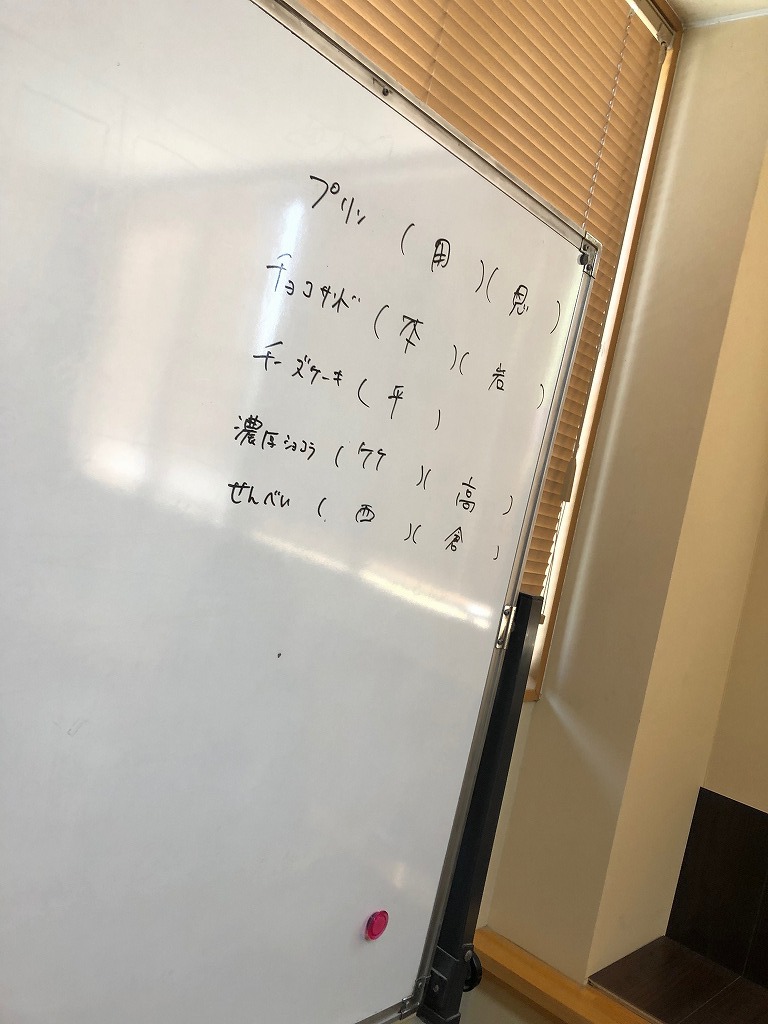 プリン ( 用 )( 恩 )
チョコサンド ( 本 )( 岩 )
チーズケーキ ( 平 )
濃厚ショコラ ( ワケ )( 高 )
せんべい ( 西 )( 倉 )